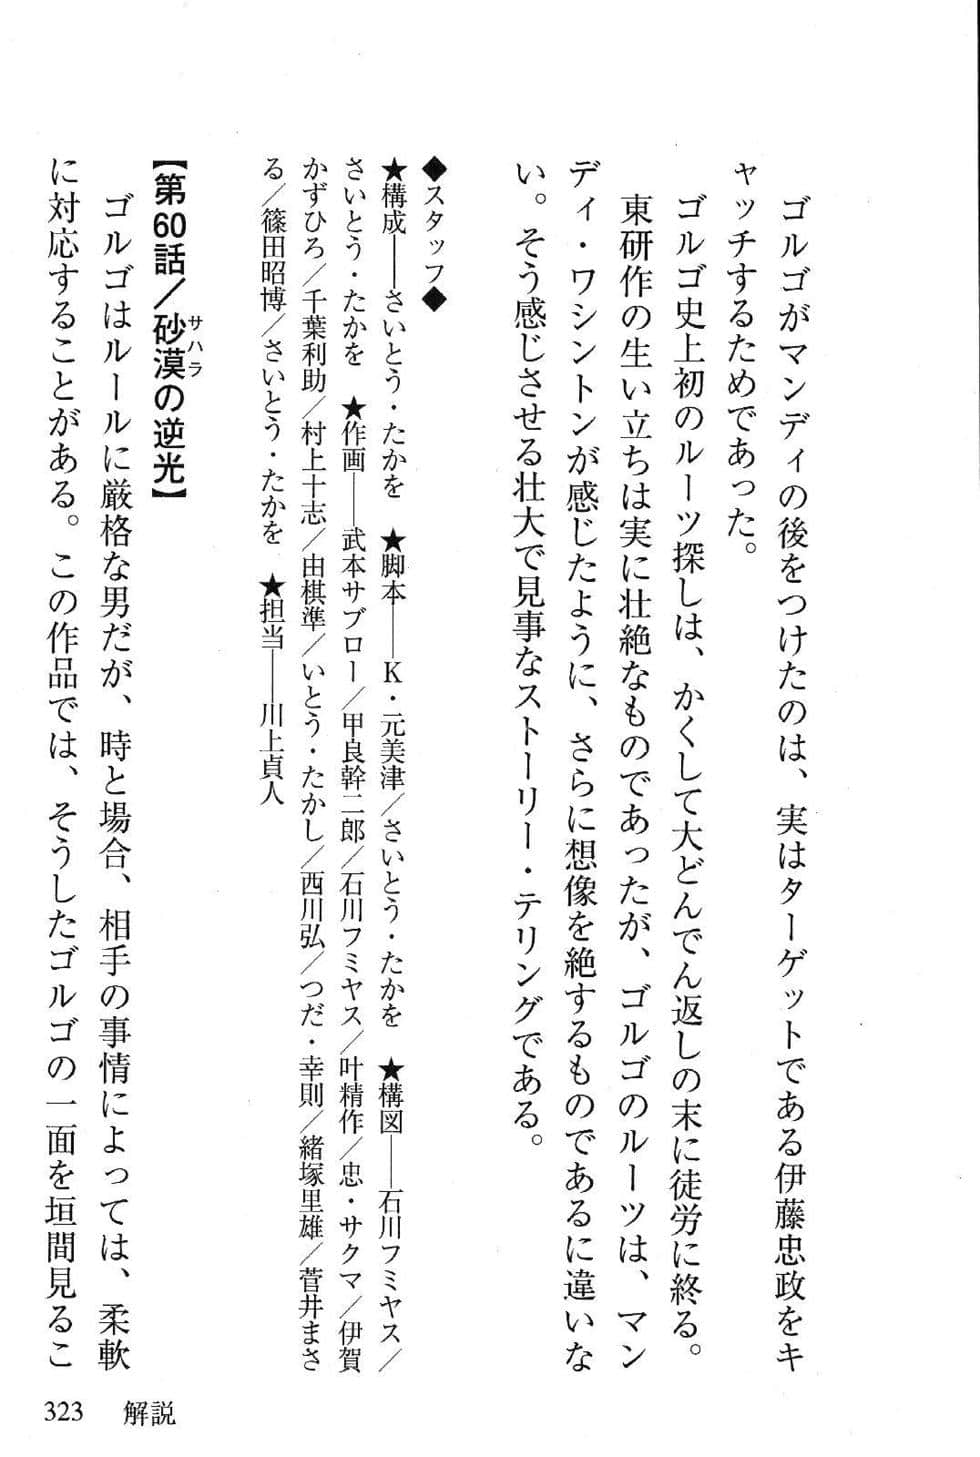 ゴルゴがマンディの後をつけたのは、実はターゲットである伊藤忠政をキ
ャッチするためであった。
ゴルゴ史上初のルーツ探しは、かくして大どんでん返しの末に徒労に終る。
東研作の生い立ちは実に壮絶なものであったが、ゴルゴのルーツは、マン
ディ・ワシントンが感じたように、さらに想像を絶するものであるに違いな
い。そう感じさせる壮大で見事なストーリー・テリングである。
◆スタッフ◆
★構成——さいとう・たかを ★脚本——K・元美津／さいとう・たかを ★構図——石川フミヤス／
さいとう・たかを ★作画——武本サブロー／甲良幹二郎／石川フミヤス／叶精作／忠・サクマ／伊賀
かずひろ／千葉利助／村上十志／由棋準／いとう・たかし／西川弘／つだ・幸則／緒塚里雄／菅井まさ
る／篠田昭博／さいとう・たかを ★担当——川上貞人
【第60話／砂漠の逆光】
サハラ
ゴルゴはルールに厳格な男だが、時と場合、相手の事情によっては、柔軟
に対応することがある。この作品では、そうしたゴルゴの一面を垣間見るこ
323 解説